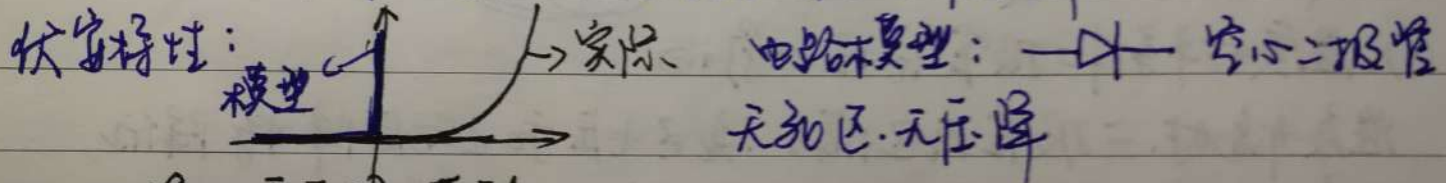 伏安特性： 模型 实际 电路模型： 空心二极管
无死区.无压降